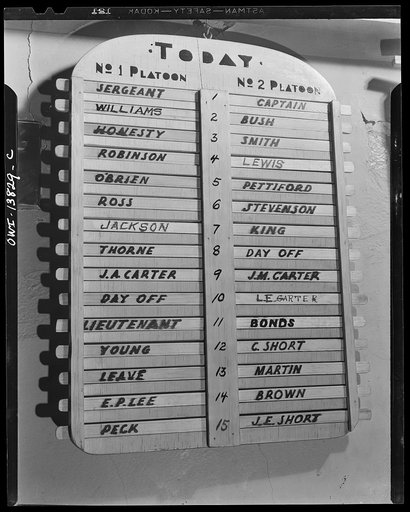 EASTMAN—SAFETY—KODAK 181
·TODAY·
Nº 1 PLATOON Nº 2 PLATOON
SERGEANT 1 CAPTAIN
WILLIAMS 2 BUSH
HOMESTY 3 SMITH
ROBINSON 4 LEWIS
O'BRIEN 5 PETTIFORD
ROSS 6 STEVENSON
JACKSON 7 KING
THORNE 8 DAY OFF
J.A.CARTER 9 J.M.CARTER
DAY OFF 10 L.E.CARTER
LIEUTENANT 11 BONDS
YOUNG 12 C.SHORT
LEAVE 13 MARTIN
E.P.LEE 14 BROWN
PECK 15 J.E.SHORT
OWI-13829-C